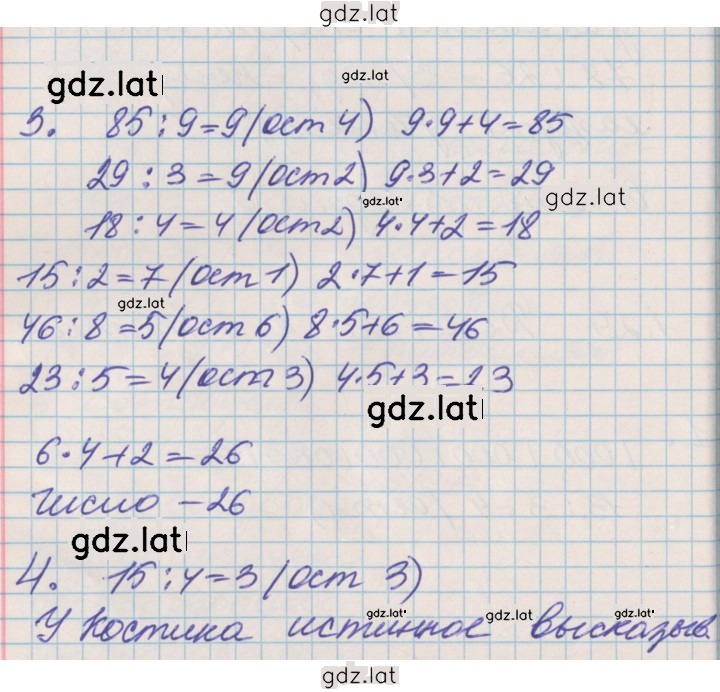 gdz.lat
gdz.lat gdz.lat
3. 85 : 9 = 9 (ост 4) 9·9+4=85
29 : 3 = 9 (ост 2) 9·3+2=29
gdz.lat gdz.lat
18 : 4 = 4 (ост 2) 4·4+2=18
15 : 2 = 7 (ост 1) 2·7+1=15
gdz.lat
46 : 8 = 5 (ост 6) 8·5+6=46
23 : 5 = 4 (ост 3) 4·5+3=23
gdz.lat
6·4+2=26
Число – 26
gdz.lat
4. 15 : 4 = 3 (ост 3)
gdz.lat gdz.lat gdz.lat
У Костика истинное высказыв.
gdz.lat